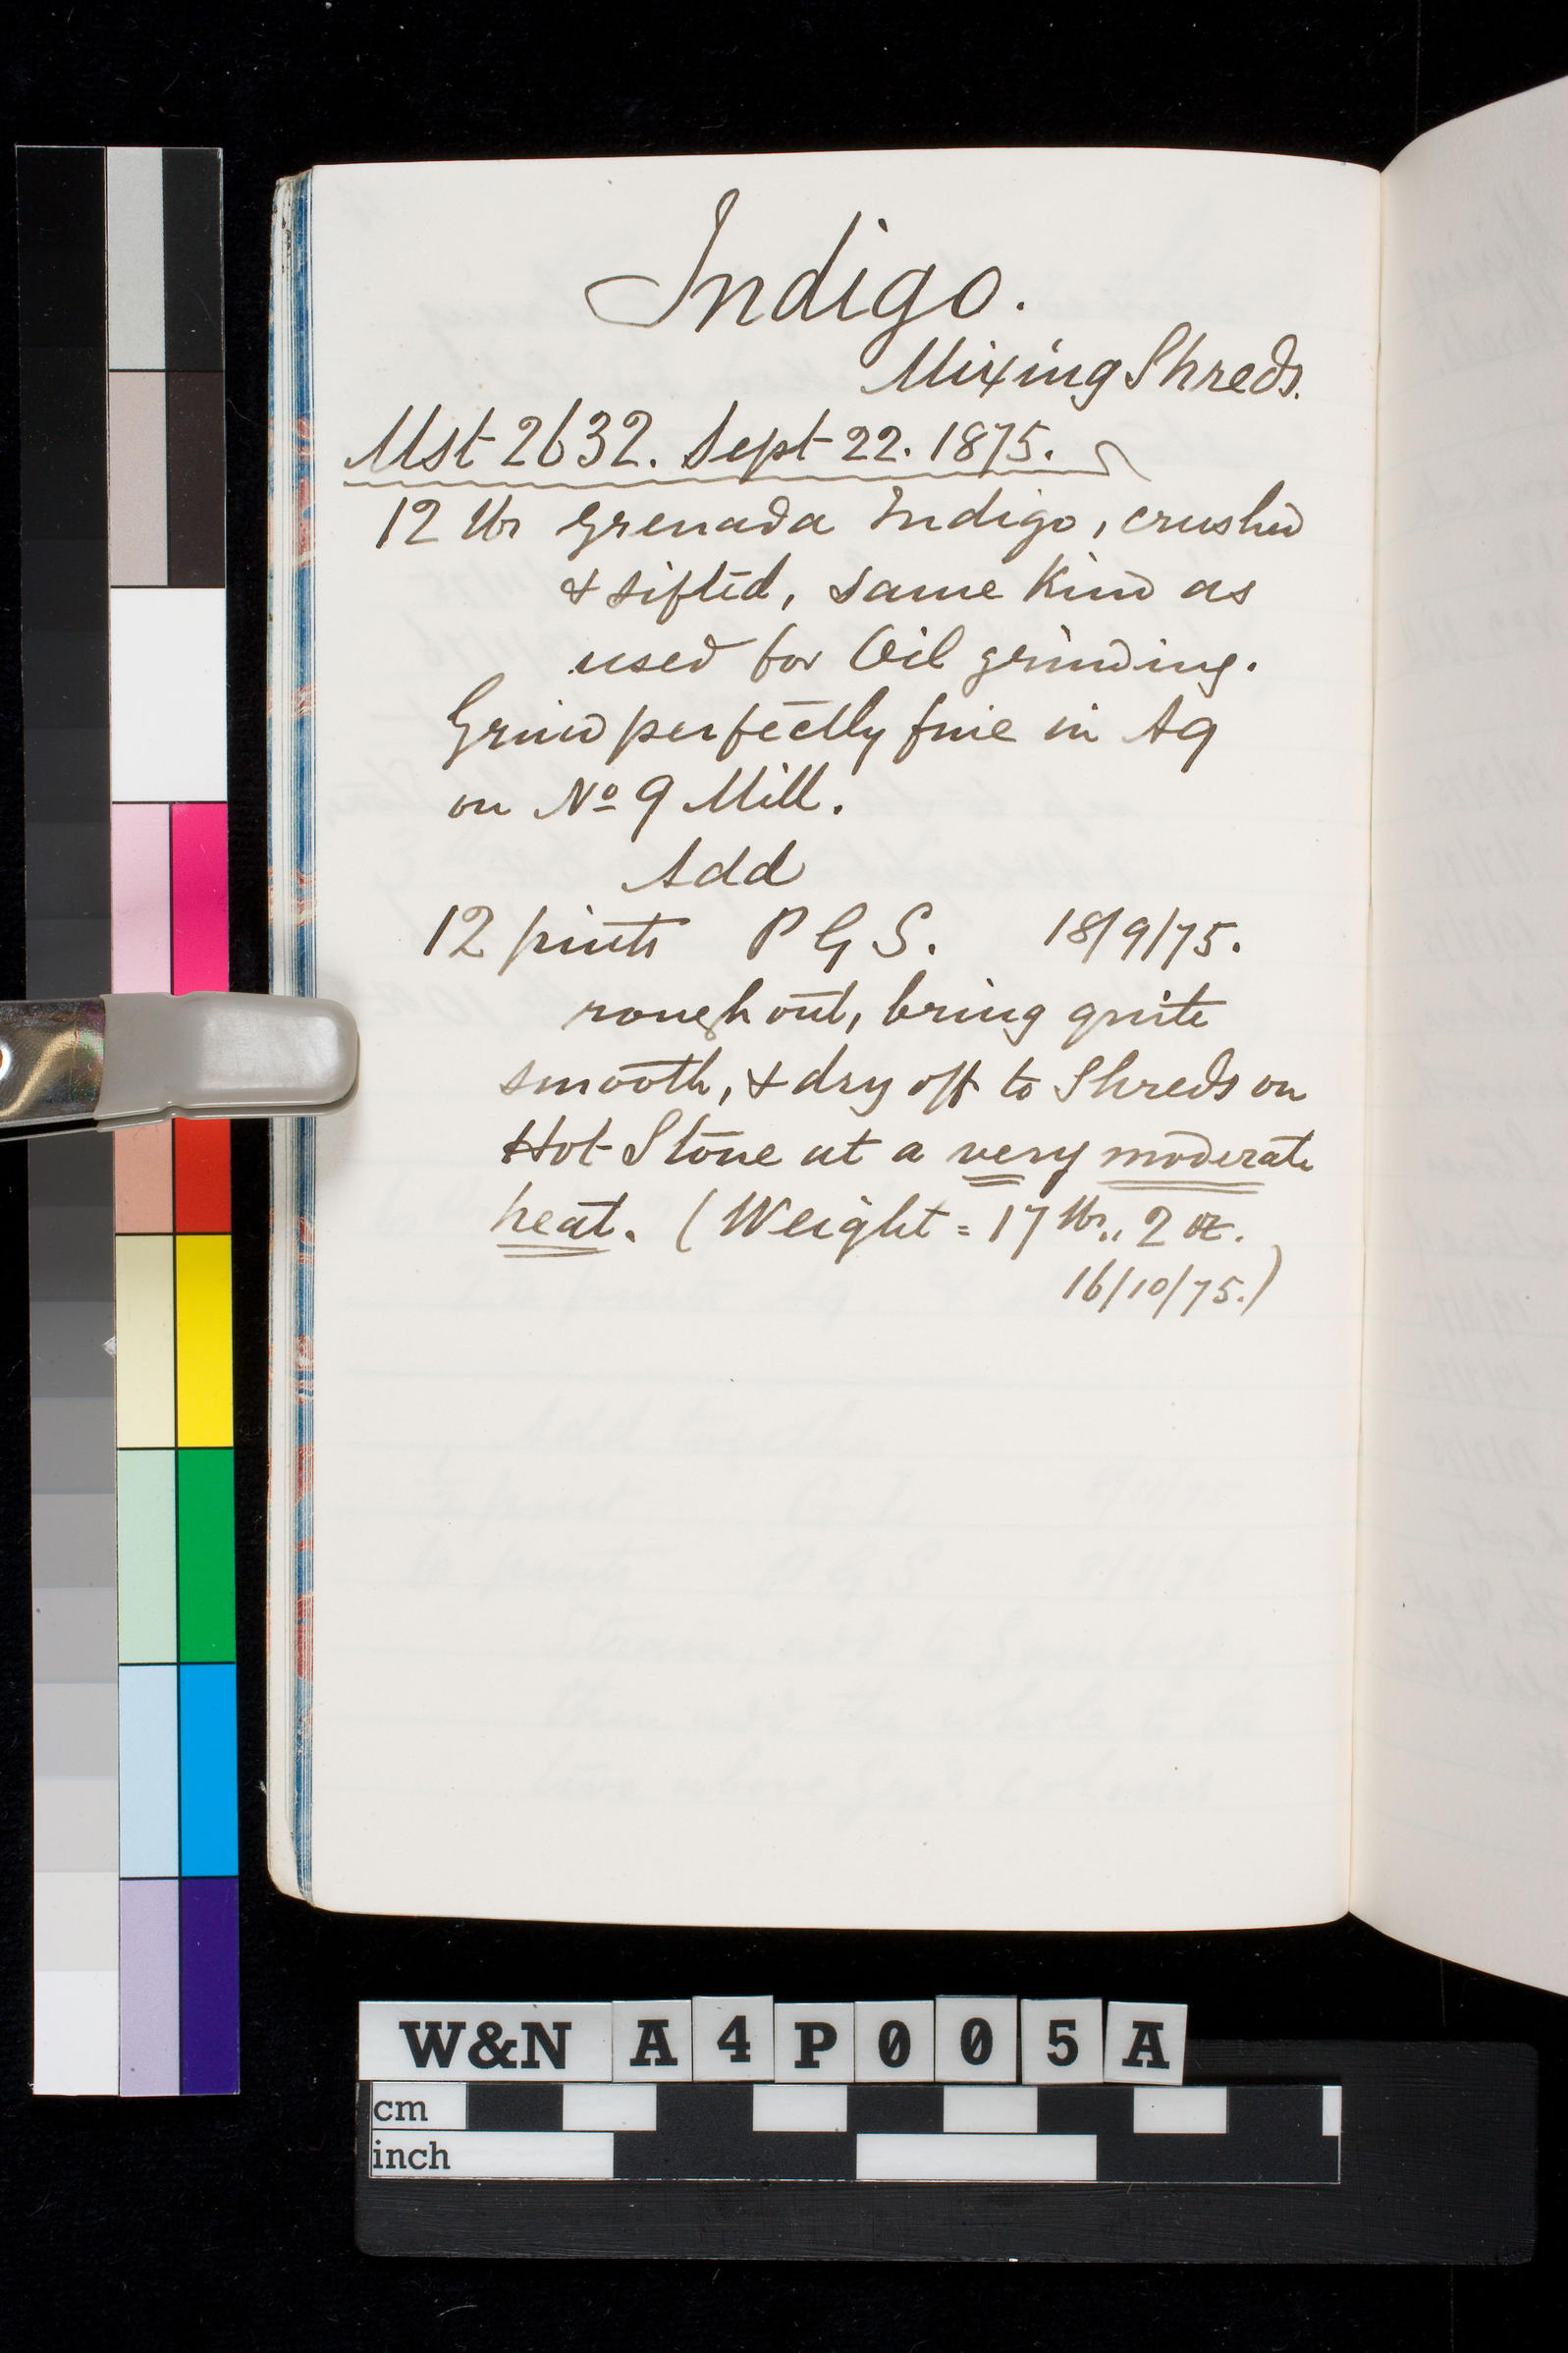 Indigo.
Mixing Shreds.
Mst 2632. Sept 22. 1875.
12 lbs Grenada Indigo, crushed
& sifted, same Kind as
used for Oil grinding.
Grind perfectly fine in Aq
on No 9 Mill.
Add
12 pints P G S. 18/9/75.
rough out, bring quite
smooth, & dry off to Shreds on
Hot Stone at a very moderate
heat. (Weight = 17 lbs,, 2 oz.
16/10/75.)
W&N A4P005A
cm
inch